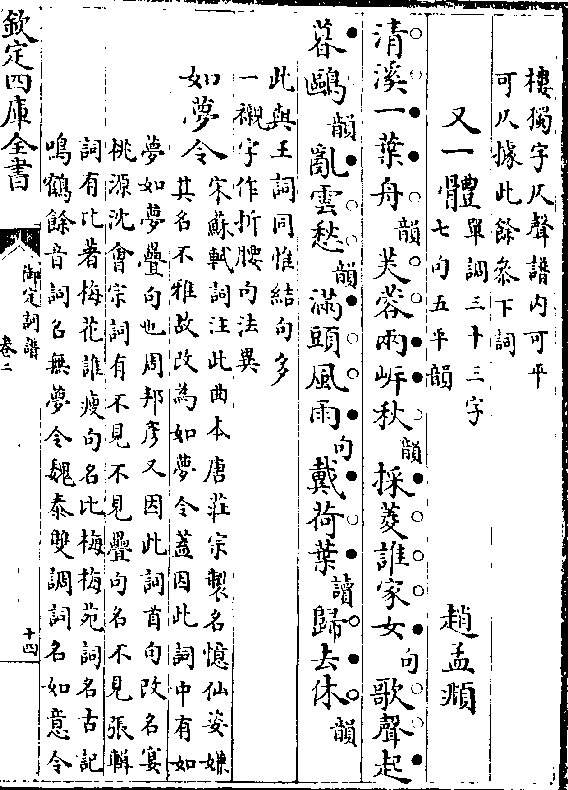 樓獨字仄聲譜内可平
可仄據此餘叅下詞
又一體 單調三十三字
七句五平韻 趙孟頫
清溪一葉舟韻芙蓉兩岍秋韻採菱誰家女句歌聲起
暮鷗韻亂雲愁韻滿頭風雨句戴荷葉讀歸去休韻
此與王詞同惟結句多
一襯字作折腰句法異
如夢令 宋蘇軾詞注此曲本唐莊宗製名憶仙姿嫌
其名不雅故改為如夢令蓋因此詞中有如
夢如夢疊句也周邦彦又因此詞首句改名宴
桃源沈會宗詞有不見不見疊句名不見張輯
詞有比著梅花誰瘦句名比梅梅苑詞名古記
鳴鶴餘音詞名無夢令魏泰雙調詞名如意令
欽定四庫全書
御定詞譜
卷二
十四